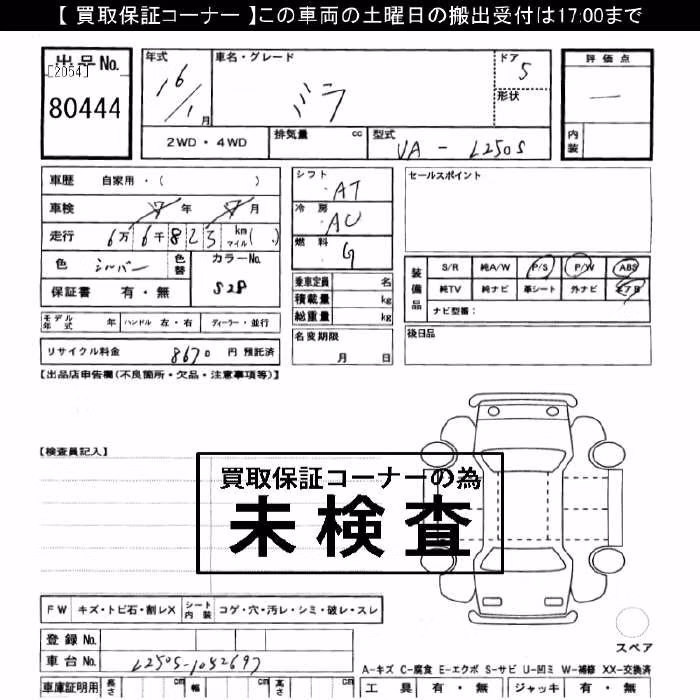 【 買取保証コーナー 】この車両の土曜日の搬出受付は17:00まで
出品No.
[2054]
80444
年式
16/1
月
車名・グレード
ミラ
ドア
5
形状
評価点
—
内装
2WD・4WD
排気量 cc
型式
UA - L250S
車歴 自家用・( )
車検 年 月
走行 6万6千823 km マイル( )
色 シルバー
色替
カラーNo.
S28
保証書 有・無
モデル年式 年 ハンドル 左・右 ディーラー・並行
リサイクル料金 8670 円 預託済
シフト AT
冷房 AC
燃料 G
乗車定員 名
積載量 kg
総重量 kg
名変期限
月 日
セールスポイント
装備品
S/R 純A/W P/S P/W ABS
純TV 純ナビ 革シート 外ナビ エアB
ナビ型番:
後日品
【出品店申告欄(不良箇所・欠品・注意事項等)】
【検査員記入】
買取保証コーナーの為
未検査
FW キズ・トビ石・割レX シート内装 コゲ・穴・汚レ・シミ・破レ・スレ
スペア
登録No.
車台No. L250S-1052697
A-キズ C-腐食 E-エクボ S-サビ U-凹ミ W-補修 XX-交換済
車庫証明用 長さ cm 幅 cm 高さ cm
工具 有・無 ジャッキ 有・無